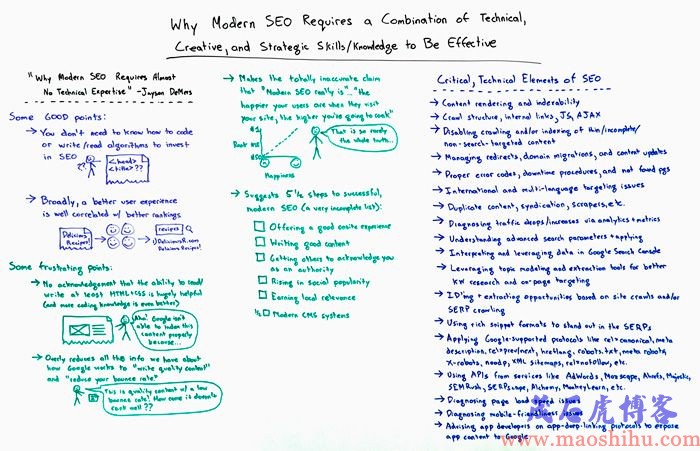 Why Modern SEO Requires a Combination of Technical,
Creative, and Strategic Skills/Knowledge to Be Effective
"Why Modern SEO Requires Almost
No Technical Expertise" -Jayson DeMers
Some GOOD points:
→ You don't need to know how to code
or write/read algorithms to invest
in SEO
??
<head>
<title>??
→ Broadly, a better user experience
is well correlated w/ better rankings
Delicious
Recipes!
recipes
1) DeliciousR.com
Delicious Recipes!
Some frustrating points:
→ No acknowledgement that the ability to read/
write at least HTML+CSS is hugely helpful
(and more coding knowledge is even better)
Aha! Google isn't
able to index this
content properly
because...
→ Overly reduces all the info we have about
how Google works to "write quality content"
and "reduce your bounce rate"
This is quality content w/ a low
bounce rate! How come it doesn't
rank well??
→ Makes the totally inaccurate claim
that "Modern SEO really is" "the
happier your users are when they visit
your site, the higher you're going to rank"
#1
Rank
Happiness
That is so rarely
the whole truth...
→ Suggests 5 1/2 steps to successful,
modern SEO (a very incomplete list):
Offering a good onsite experience
Writing good content
Getting others to acknowledge you
as an authority
Rising in social popularity
Earning local relevance
1/2 Modern CMS systems
Critical, Technical Elements of SEO
→ Content rendering and indexability
→ Crawl structure, internal links, JS, AJAX
→ Disabling crawling and/or indexing of thin/incomplete/
non-search-targeted content
→ Managing redirects, domain migrations, and content updates
→ Proper error codes, downtime procedures, and not found pgs
→ International and multi-language targeting issues
→ Duplicate content, syndication, scrapers, etc.
→ Diagnosing traffic drops/increases via analytics+metrics
→ Understanding advanced search parameters + applying
→ Interpreting and leveraging data in Google Search Console
→ Leveraging topic modeling and extraction tools for better
KW research and on-page targeting
→ ID'ing + extracting opportunities based on site crawls and/or
SERP crawling
→ Using rich snippet formats to stand out in the SERPs
→ Applying Google-supported protocols like rel=canonical, meta
description, rel=prev/next, hreflang, robots.txt, meta robots,
X-robots, noodp, XML sitemaps, rel=nofollow, etc.
→ Using APIs from services like AdWords, Mozscape, Ahrefs, Majestic,
SEMRush, SERPscape, Alchemy, MonkeyLearn, etc.
→ Diagnosing page load speed issues
→ Diagnosing mobile-friendliness issues
→ Advising app developers on app-deep-linking protocols to expose
app content to Google
茂石虎博客
www.maoshihu.com